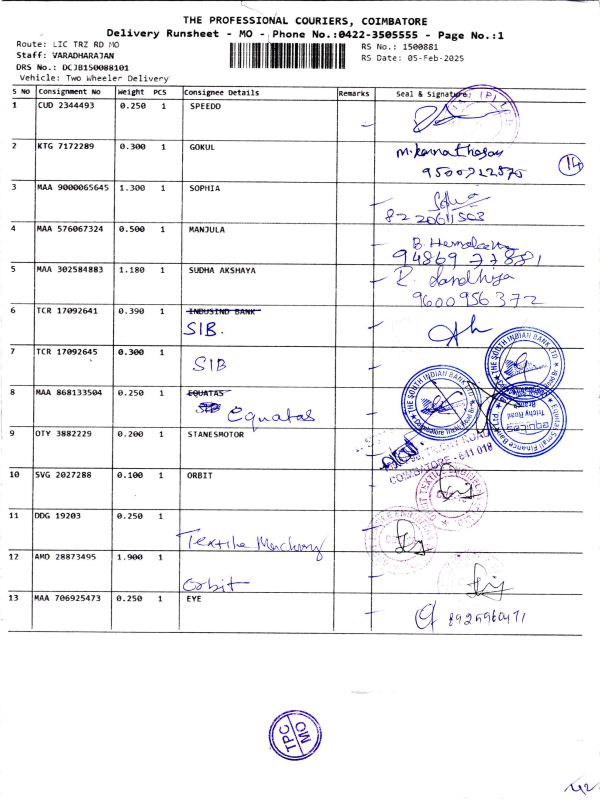 THE PROFESSIONAL COURIERS, COIMBATORE
Delivery Runsheet - MO - Phone No.:0422-3505555 - Page No.:1
Route: LIC TRZ RD MO
RS No.: 1500881
Staff: VARADHARAJAN
RS Date: 05-Feb-2025
DRS No.: DCJB150088101
Vehicle: Two Wheeler Delivery
S No Consignment No Weight PCS Consignee Details Remarks Seal & Signature
1 CUD 2344493 0.250 1 SPEEDO
2 KTG 7172289 0.300 1 GOKUL
14
3 MAA 9000065645 1.300 1 SOPHIA
8220611503
4 MAA 576067324 0.500 1 MANJULA
94869 77881
5 MAA 302584883 1.180 1 SUDHA AKSHAYA
9600956372
6 TCR 17092641 0.390 1 INDUSIND BANK
SIB.
7 TCR 17092645 0.300 1
SIB
THE SOUTH INDIAN BANK LTD
THE SOUTH INDIAN BANK LTD
8 MAA 868133504 0.250 1 EQUATAS
Equatas
Equitas Small Finance Bank Ltd
equitas
Trichy Road
Branch
9 OTY 3882229 0.200 1 STANESMOTOR
COIMBATORE - 641 018
10 SVG 2027288 0.100 1 ORBIT
11 DDG 19203 0.250 1
Textile Machinery
12 AMD 28873495 1.900 1
Orbit
13 MAA 706925473 0.250 1 EYE
8925960471
TPC
MO